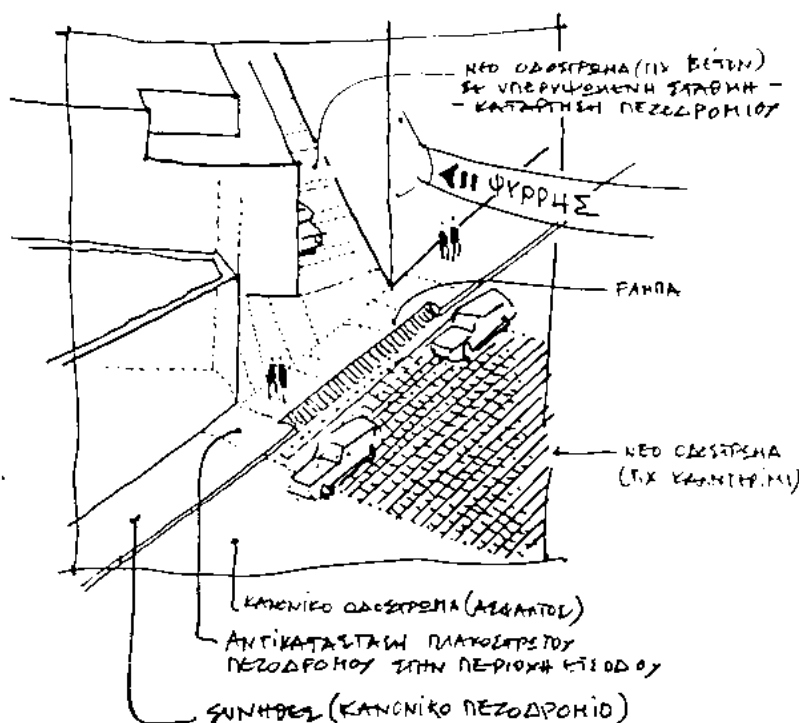 ΝΕΟ ΟΔΟΣΤΡΩΜΑ (ΠΧ ΒΕΤΟΝ)
ΣΕ ΥΠΕΡΥΨΩΜΕΝΗ ΣΤΑΘΜΗ -
- ΚΑΤΑΡΓΗΣΗ ΠΕΖΟΔΡΟΜΙΟΥ
ΨΥΡΡΗΣ
ΡΑΜΠΑ
ΝΕΟ ΟΔΟΣΤΡΩΜΑ
(ΠΧ ΚΑΛΝΤΕΡΙΜΙ)
ΚΑΝΟΝΙΚΟ ΟΔΟΣΤΡΩΜΑ (ΑΣΦΑΛΤΟΣ)
ΑΝΤΙΚΑΤΑΣΤΑΣΗ ΠΛΑΚΟΣΤΡΩΤΟΥ
ΠΕΖΟΔΡΟΜΟΥ ΣΤΗΝ ΠΕΡΙΟΧΗ ΕΙΣΟΔΟΥ
ΣΥΝΗΘΕΣ (ΚΑΝΟΝΙΚΟ ΠΕΖΟΔΡΟΜΙΟ)